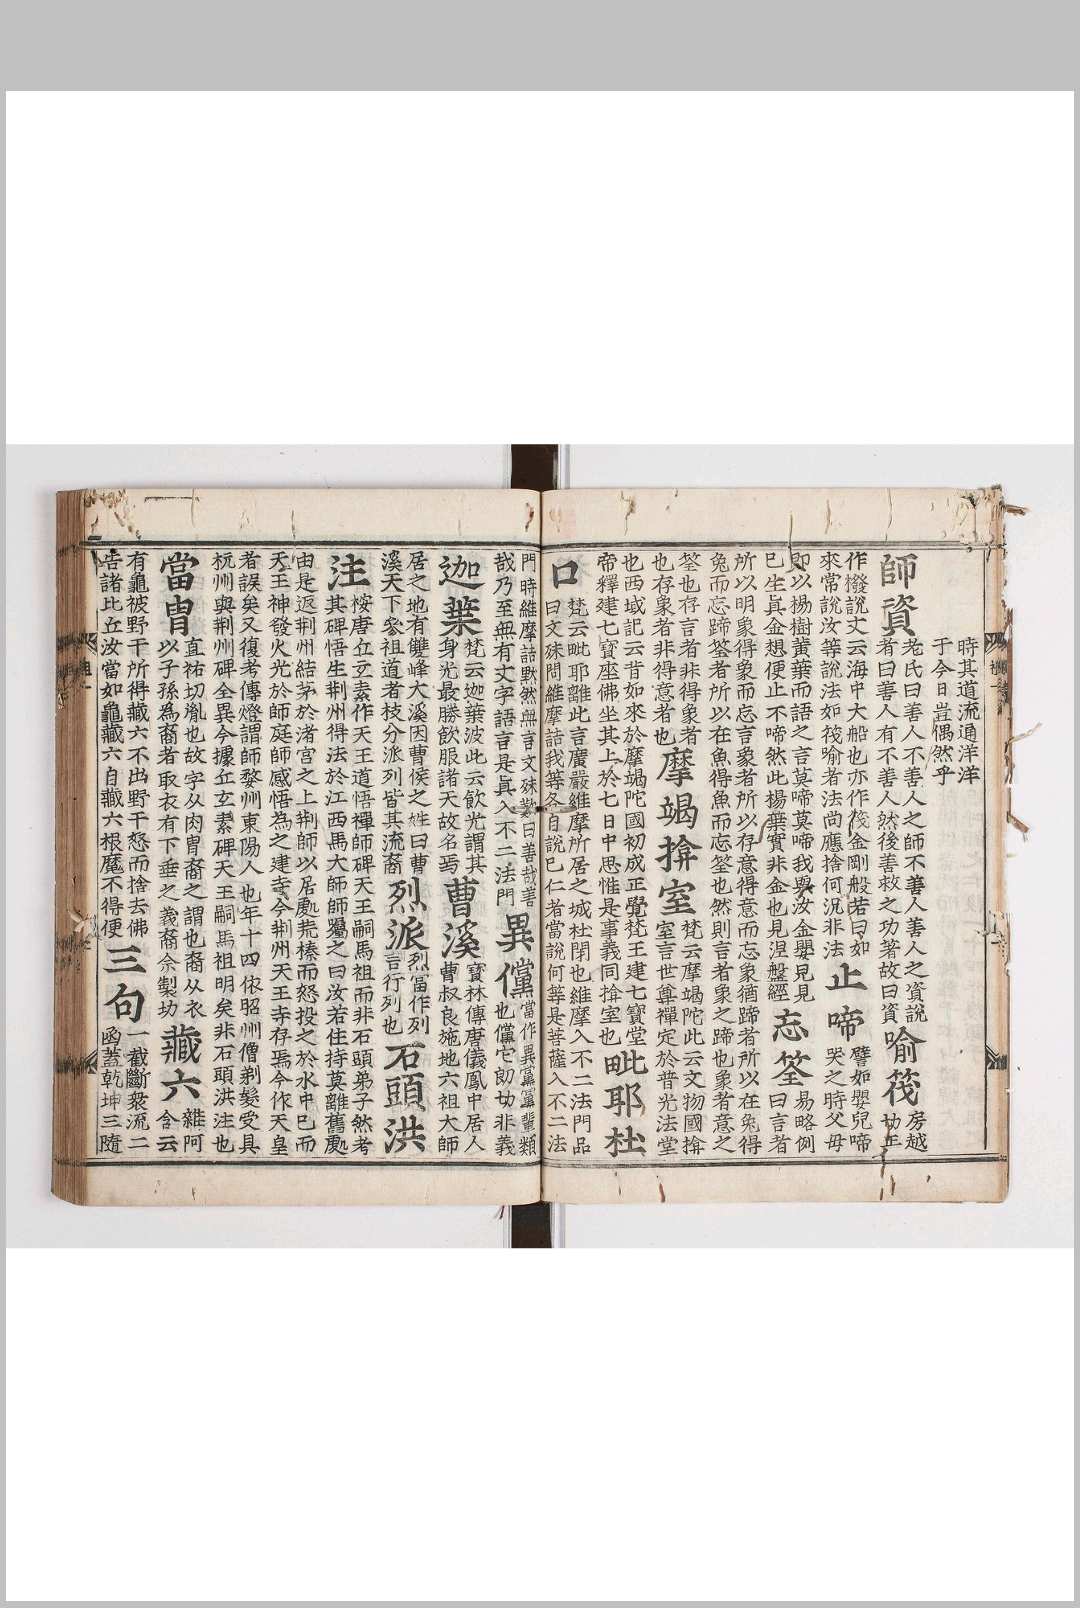 時其道流通洋洋
于今日豈偶然乎
師資
老氏曰善人不善人之師不善人善人之資說
者曰善人有不善人然後善救之功著故曰資
喻筏
房越
切正
作橃說文云海中大船也亦作筏金剛般若曰如
來常說汝等說法如筏喻者法尚應捨何況非法
止啼
譬如嬰兒啼
哭之時父母
即以楊樹黃葉而語之言莫啼莫啼我與汝金嬰兒見
已生真金想便止不啼然此楊葉實非金也見涅盤經
忘筌
易略例
曰言者
所以明象得象而忘言象者所以存意得意而忘象猶蹄者所以在兔得
兔而忘蹄筌者所以在魚得魚而忘筌也然則言者象之蹄也象者意之
筌也存言者非得象者
也存象者非得意者也
摩竭揜室
梵云摩竭陀此云文物國揜
室言世尊禪定於普光法堂
也西域記云昔如來於摩竭陀國初成正覺梵王建七寶堂
帝釋建七寶座佛坐其上於七日中思惟是事義同揜室也
毗耶杜
口
梵云毗耶離此言廣嚴維摩所居之城杜閉也維摩入不二法門品
曰文殊問維摩詰我等各自說已仁者當說何等是菩薩入不二法
門時維摩詰默然無言文殊歎曰善哉善
哉乃至無有文字語言是真入不二法門
異儻
當作異黨黨輩類
也儻它朗切非義
迦葉
梵云迦葉波此云飲光謂其
身光最勝飲服諸天故名焉
曹溪
寶林傳唐儀鳳中居人
曹叔良施地六祖大師
居之地有雙峰大溪因曹侯之姓曰曹
溪天下參祖道者枝分派列皆其流裔
烈派
烈當作列
言行列也
石頭洪
注
桉唐丘玄素作天王道悟禪師碑天王嗣馬祖而非石頭弟子然考
其碑悟生荆州得法於江西馬大師師囑之曰汝若住持莫離舊處
由是返荆州結茅於渚宮之上荆師以居處荒榛而怒投之於水中已而
天王神發火光於師庭師感悟為之建寺今荆州天王寺存焉今作天皇
者誤矣又復考傳燈謂師婺州東陽人也年十四依昭州僧剃髮受具
杭州與荆州碑全異今據丘玄素碑天王嗣馬祖明矣非石頭洪注也
當胄
直祐切胤也故字从肉胄裔之謂也裔从衣
以子孫為裔者取衣有下垂之義裔余製切
藏六
雜阿
含云
有龜被野干所得藏六不出野干怒而捨去佛
告諸比丘汝當如龜藏六自藏六根魔不得便
三句
一截斷衆流二
函蓋乾坤三隨